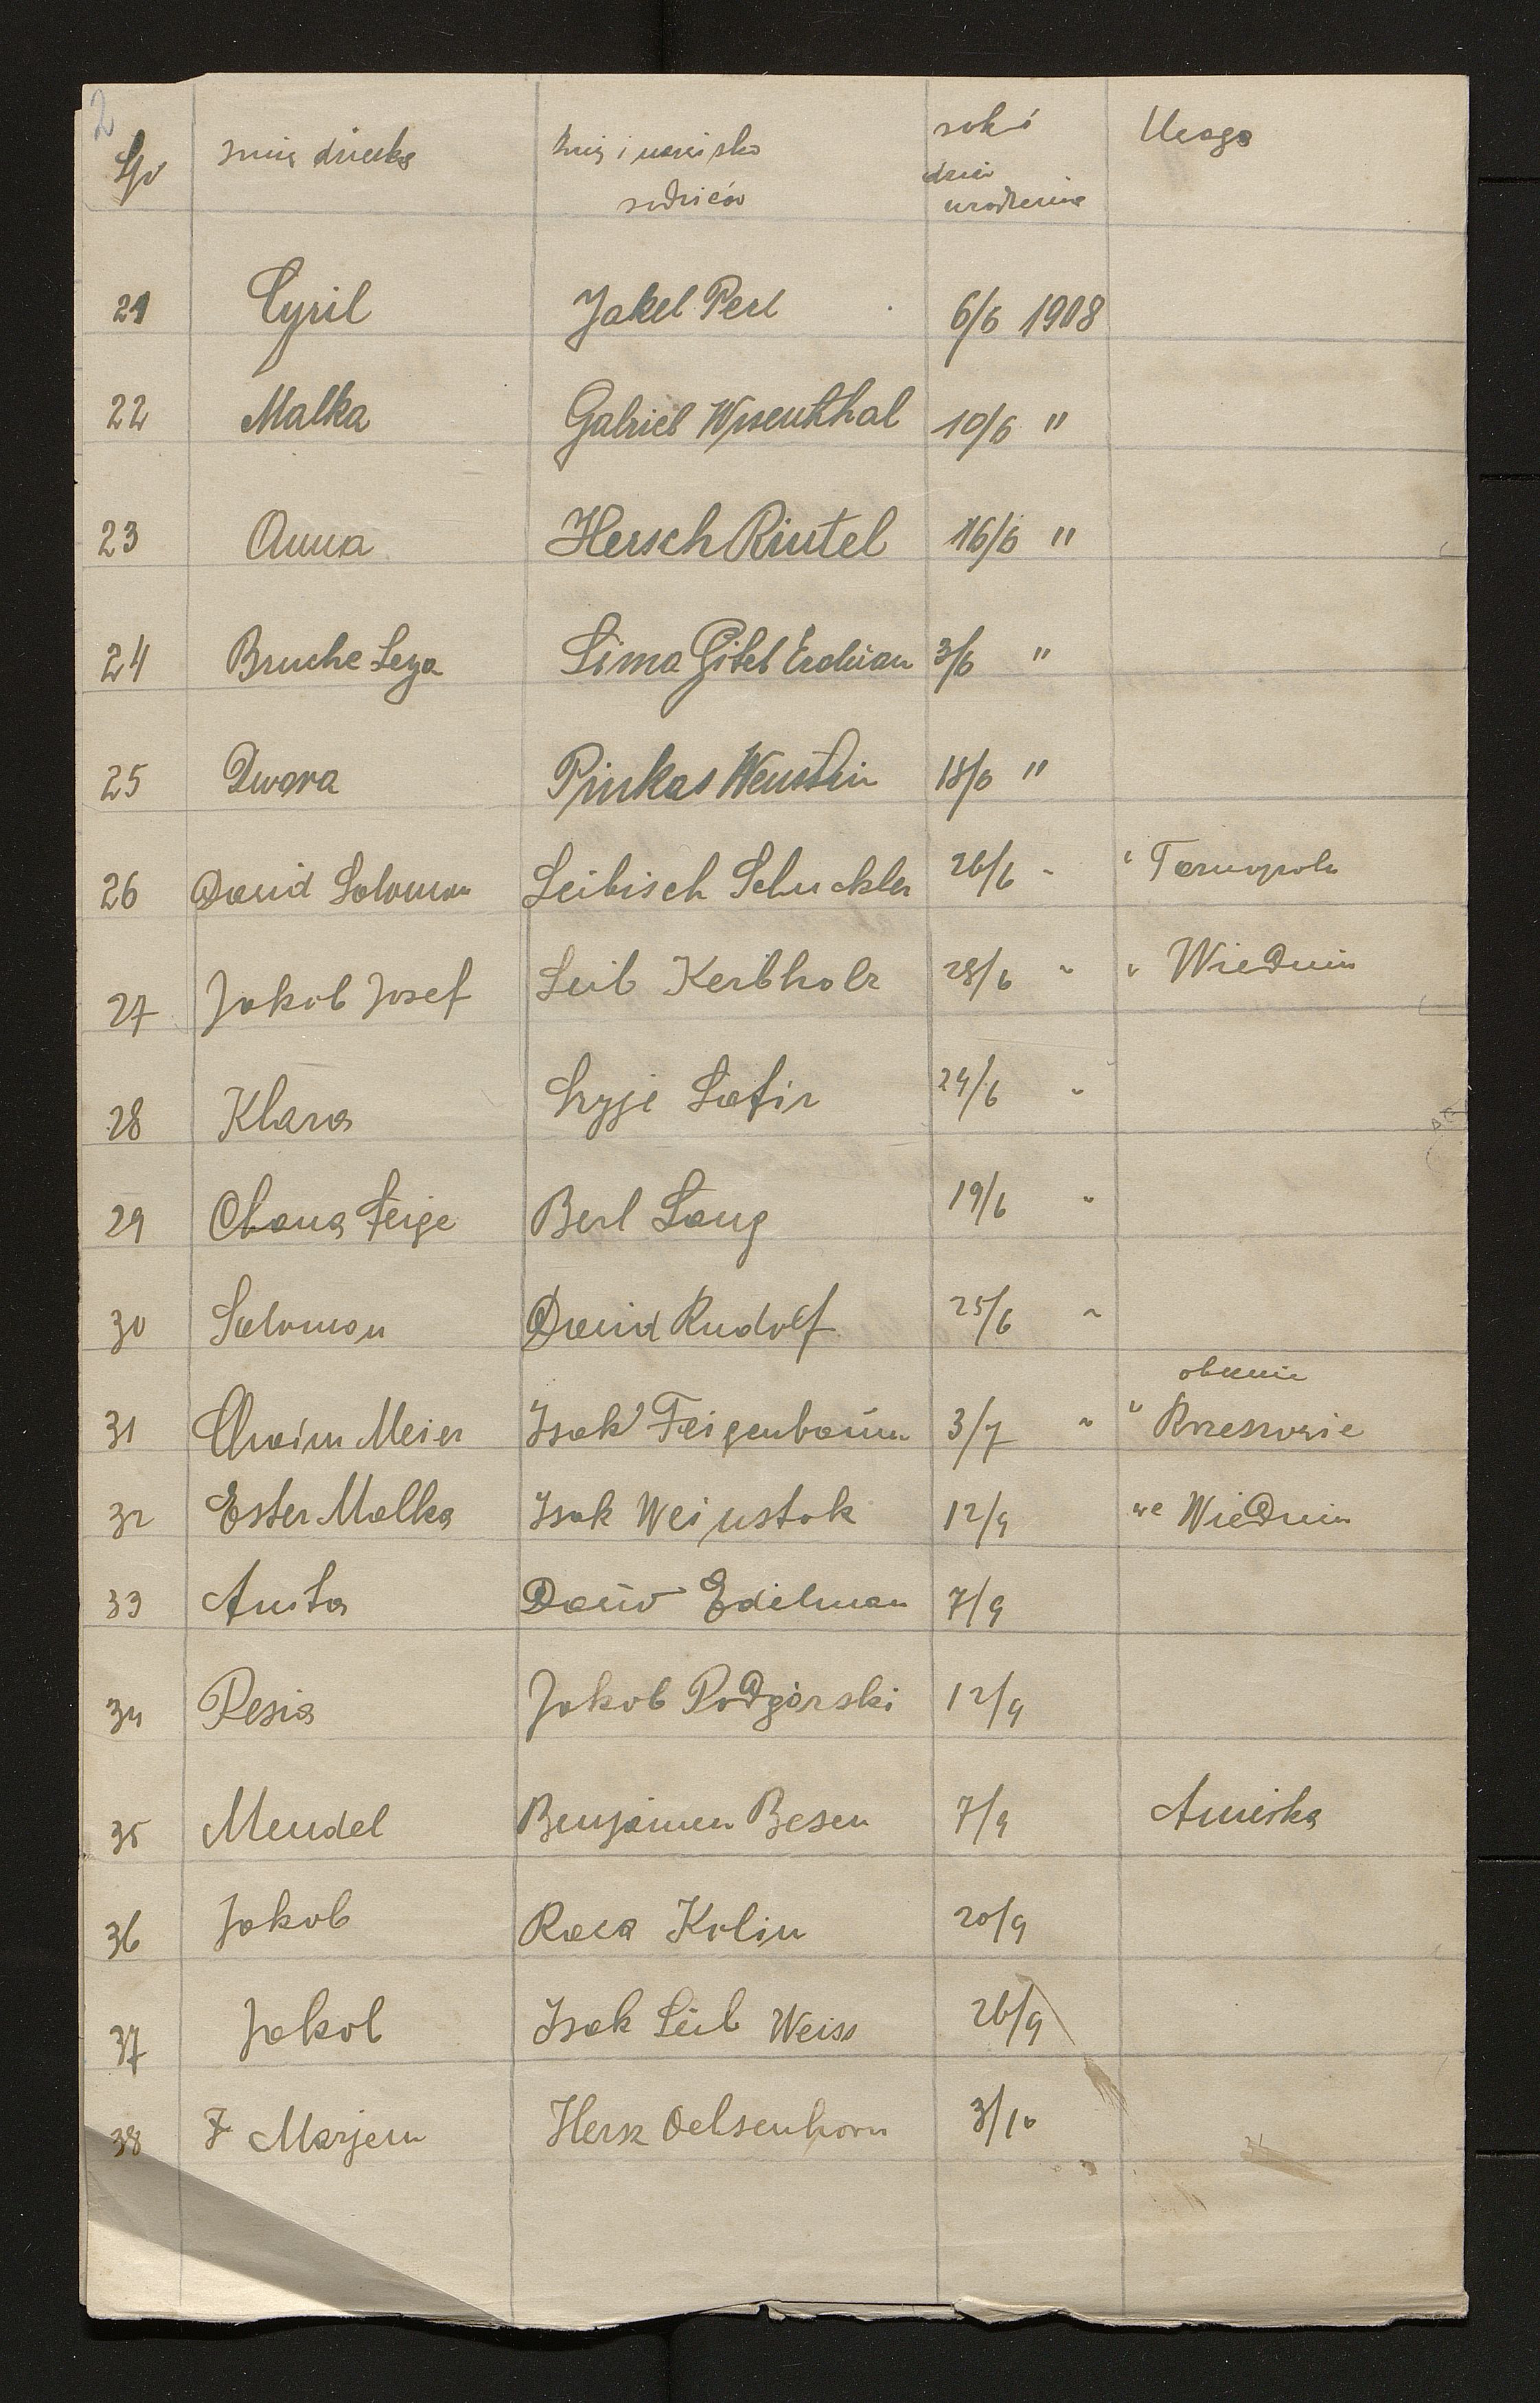 2
Lp imię dziecka Imię i nazwisko rodziców rok i dzień urodzenia Uwaga
21 Cyril Jakel Perl 6/6 1908
22 Malka Gabriel Wisenthal 10/6 "
23 Anna Hersch Rintel 16/6 "
24 Bruche Leya Sima Gitel Erdman 3/6 "
25 Dwora Pinkas Weinstein 18/6 "
26 David Solomon Leibisch Schuckler 26/6 " " Tarnopolu
27 Jakob Josef Leib Kerbholz 28/6 " " Wiedniu
28 Klara Safir 24/6 "
29 Chana Feige Berl Lang 19/6 "
30 Salomon David Rudolf 25/6 "
obecnie
31 Chaim Meier Isak Feigenbaum 3/7 " " Rzeszowie
32 Ester Malka Isak Weinstok 12/9 we Wiedniu
33 Anita Dawid Edelman 7/9
34 Resia Jakob Podgórski 12/9
35 Mendel Benjamin Besen 7/9 Ameryka
36 Jakob Kolin 20/9
37 Jakob Isak Leib Weiss 26/9
38 Marjem Hersz Oelsenhorn 3/10